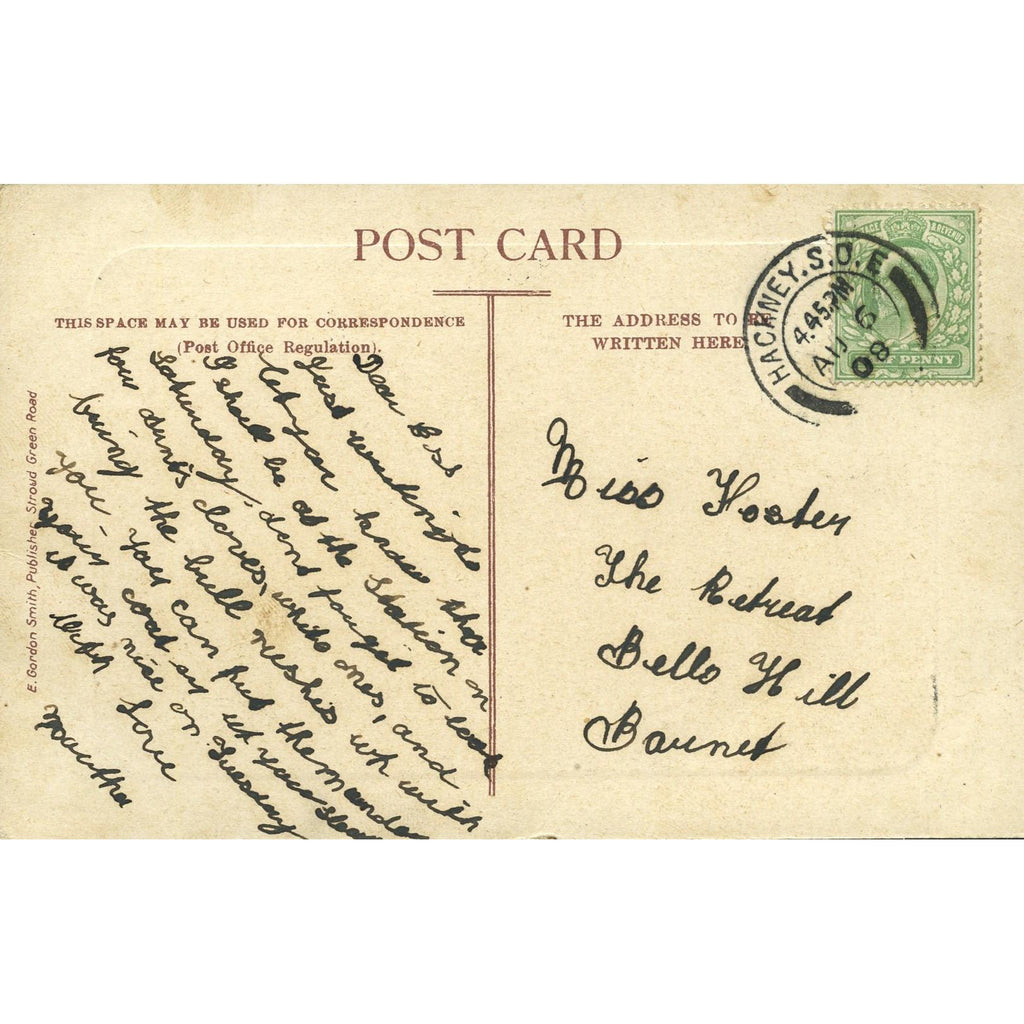 POST CARD
THIS SPACE MAY BE USED FOR CORRESPONDENCE
(Post Office Regulation).
THE ADDRESS TO BE
WRITTEN HERE
HACKNEY.S.O.E
4.45PM
6
AU
08
& REVENUE
F PENNY
E. Gordon Smith, Publisher, Stroud Green Road
Dear
Just
let you know that
I shall be at the Station on
Saturday, dont forget to look
for Aunts white ones, and
bring the bull rushes with
you. you can put them under
your coat
it was nice on Tuesday
With Love
Miss Foster
The Retreat
Bells Hill
Barnet